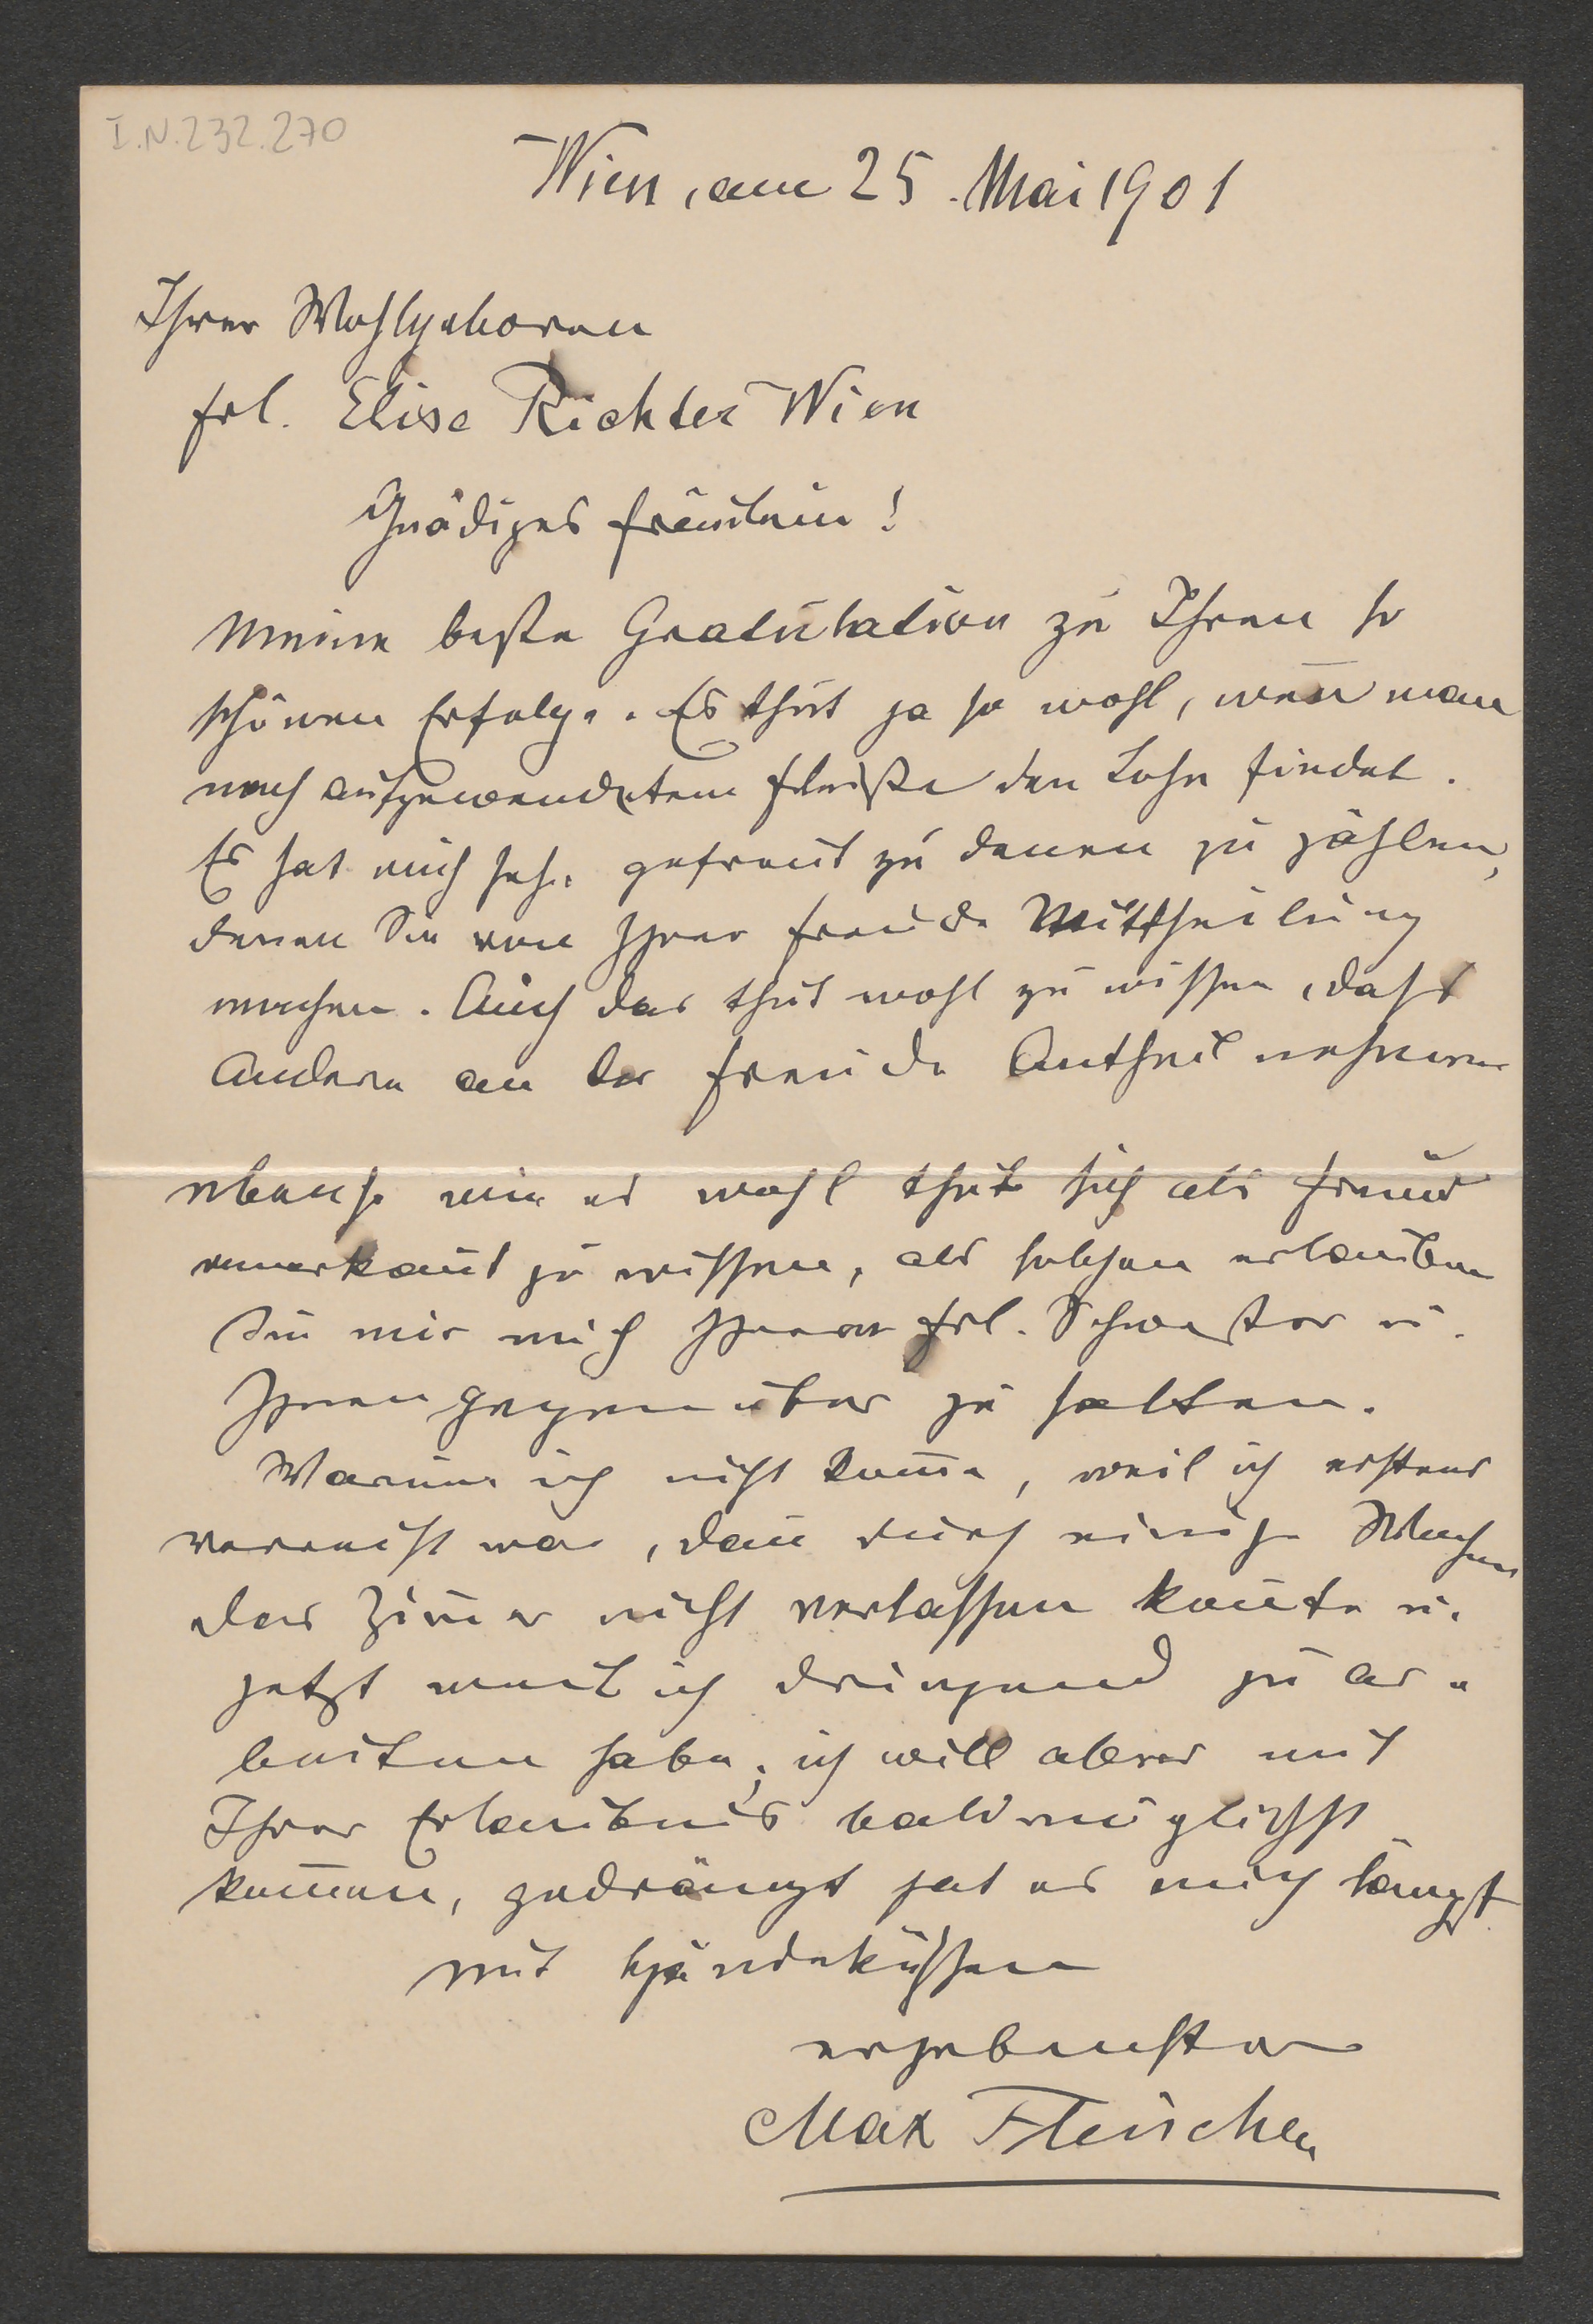 I.N.232.270
Wien, am 25. Mai 1901
Ihrer Wohlgeboren
Frl. Elise Richter Wien
Gnädiges Fräulein!
Meine beste Gratulation zu Ihren so
schönen Erfolge. Es thut ja so wohl, weñ man
nach aufgewendetem Fleiße den Lohn findet.
Es hat mich sehr gefreut zu denen zu zählen,
denen Sie von Ihrer Freude Mittheilung
machen. Auch das thut wohl zu wissen, dass
Andere an der Freude Antheil nehmen
ebenso wie es wohl thut sich als Freund
anerkañt zu wissen, als solchen erlauben
Sie mir mich Ihrer Frl. Schwester u.
Ihnen gegenüber zu halten.
Warum ich nicht kom̄e, weil ich erstens
verreist war, dañ durch einige Wochen
das Zim̄er nicht verlassen koñte u.
jetzt weil ich dringend zu ar-
beiten habe; ich will aber mit
Ihrer Erlaubnis baldmöglichst
kom̄en, gedrängt hat es mich längst
mit Händeküssen
ergebenster
Max Fleischer